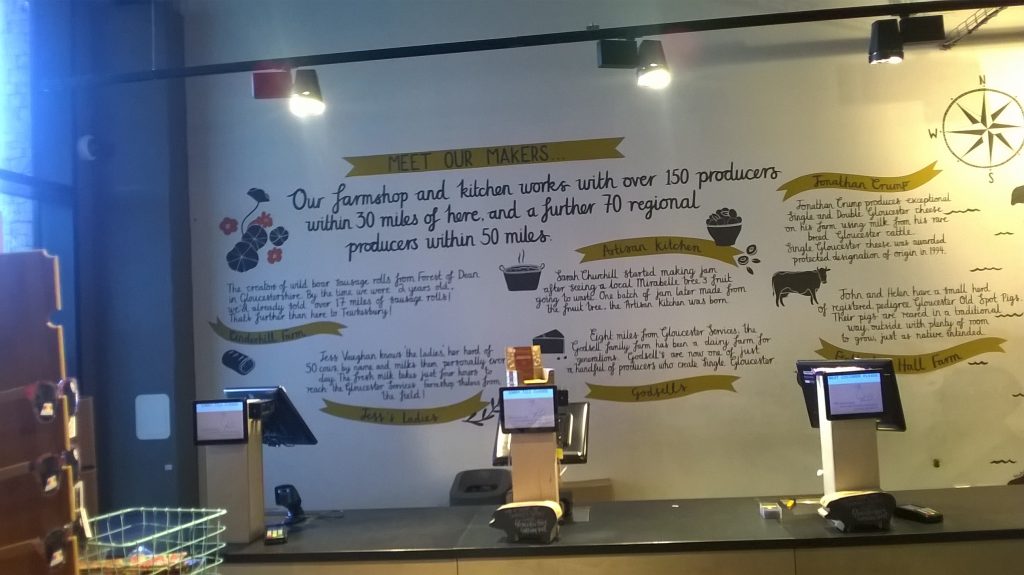 MEET OUR MAKERS...
Our farmshop and kitchen works with over 150 producers
within 30 miles of here, and a further 70 regional
producers within 50 miles.
The creators of wild boar sausage rolls from Forest of Dean
in Gloucestershire. By the time we were 2 years old,
we'd already sold over 17 miles of sausage rolls!
That's further than here to Tewkesbury!
Jess Vaughan knows 'the ladies', her herd of
50 cows, by name and milks them personally every
day. The fresh milk takes just four hours to
reach the Gloucester Services farmshop shelves from
the field!
Jess's Ladies
Artisan Kitchen
Sarah Churchill started making jam
after seeing a local Mirabelle tree's fruit
going to waste. One batch of jam later made from
the fruit tree, the Artisan Kitchen was born.
Eight miles from Gloucester Services, the
Godsell family farm has been a dairy farm for
generations. Godsell's are now one of just
a handful of producers who create Single Gloucester
Godsells
Jonathan Crump
Jonathan Crump produces exceptional
Single and Double Gloucester cheese
on his farm using milk from his rare
breed Gloucester cattle.
Single Gloucester cheese was awarded
protected designation of origin in 1994.
John and Helen have a small herd
of registered pedigree Gloucester Old Spot Pigs.
Their pigs are reared in a traditional
way, outside with plenty of room
to grow, just as nature intended.
Hall Farm
N
W
S